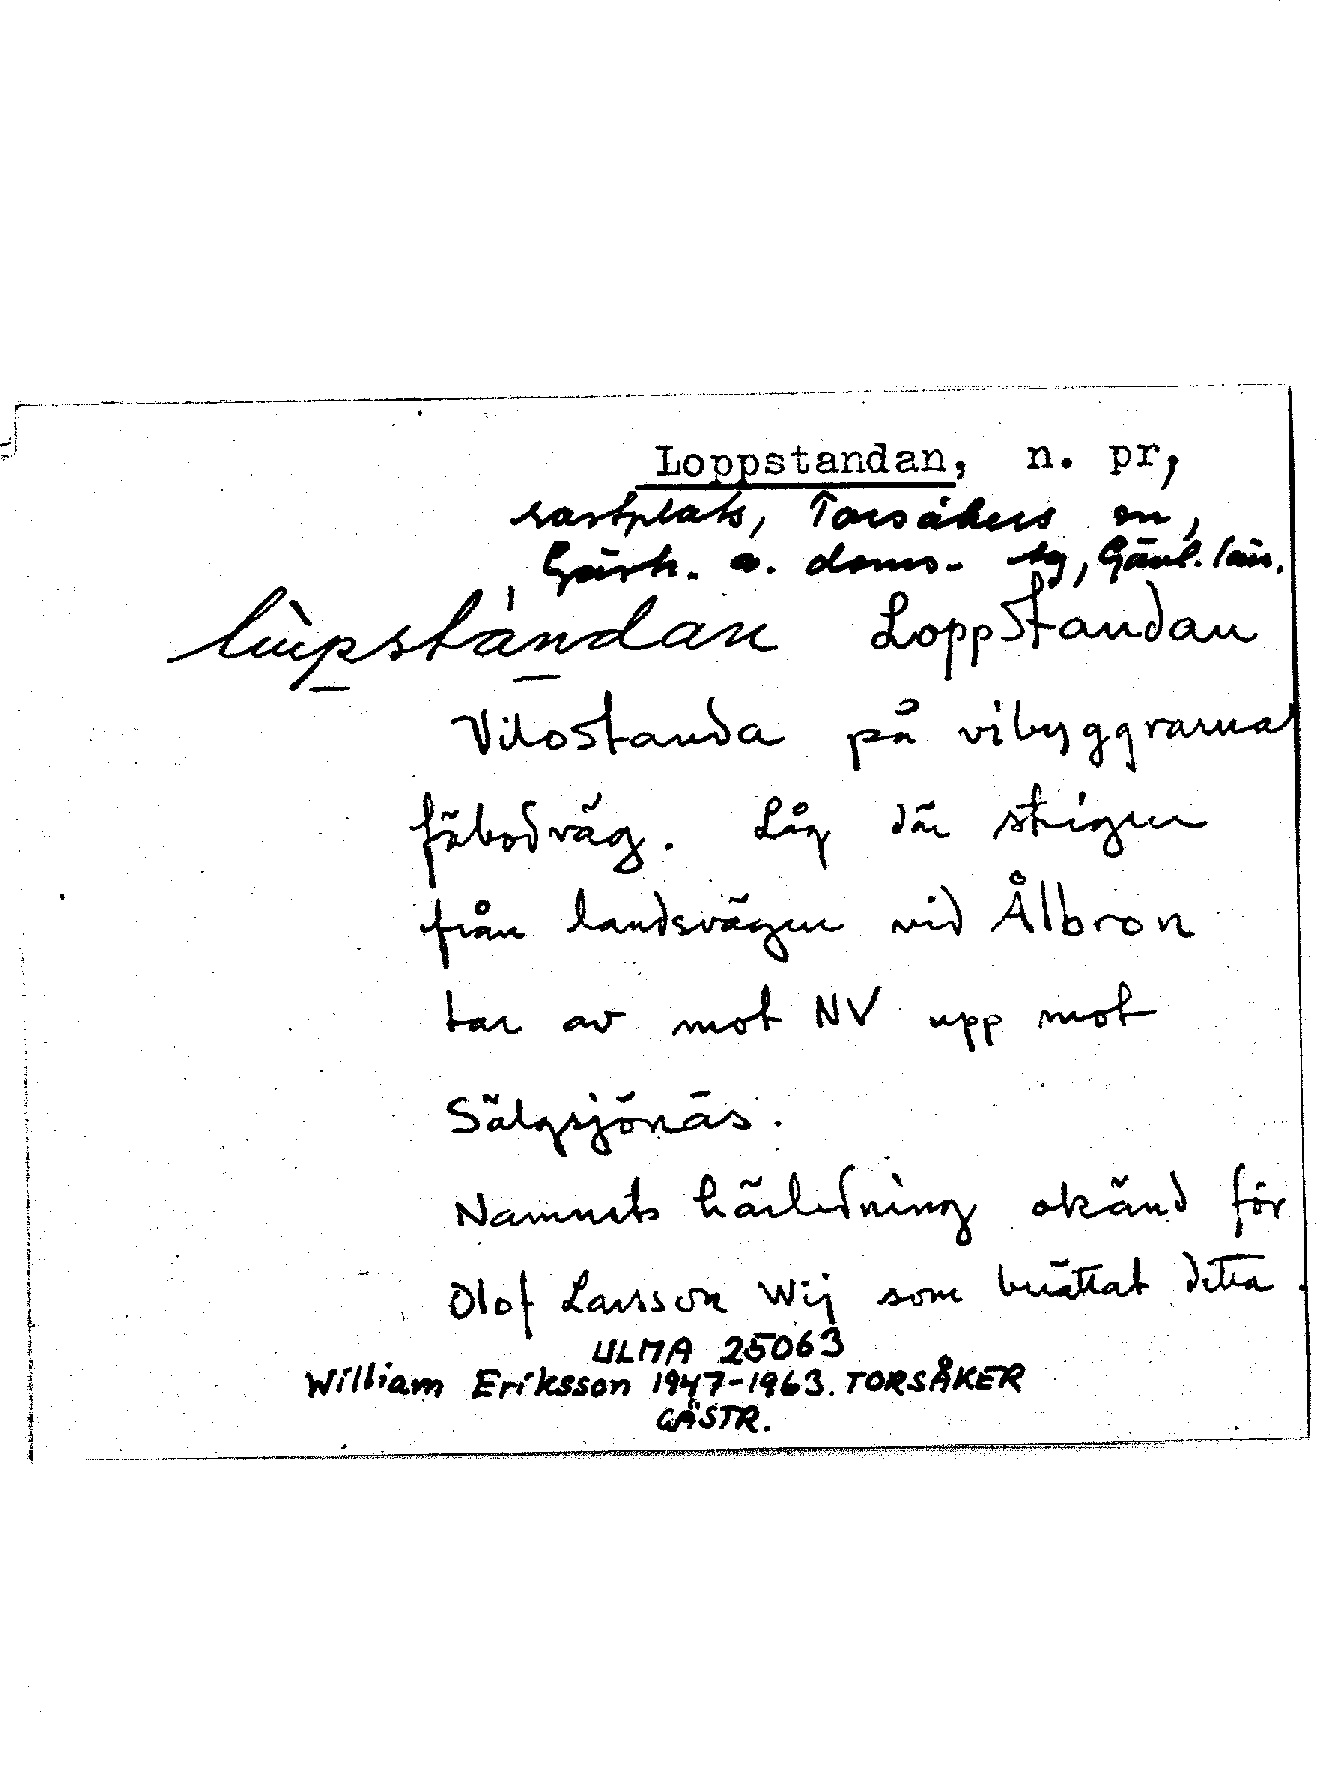 Loppstandan, n. pr,
rastplats, Torsåkers sn,
Gästr. ö. doms- sg, Gävl. län.
Loppstandan
Vilostanda på vibyggrarna
fäbodväg. Låg där stigen
från landsvägen vid Ålbron
tar av mot NV upp mot
Sälgsjönäs.
Namnets härledning okänd för
Olof Larsson Wij som berättat detta.
ULMA 25063
William Eriksson 1947-1963. TORSÅKER
GÄSTR.